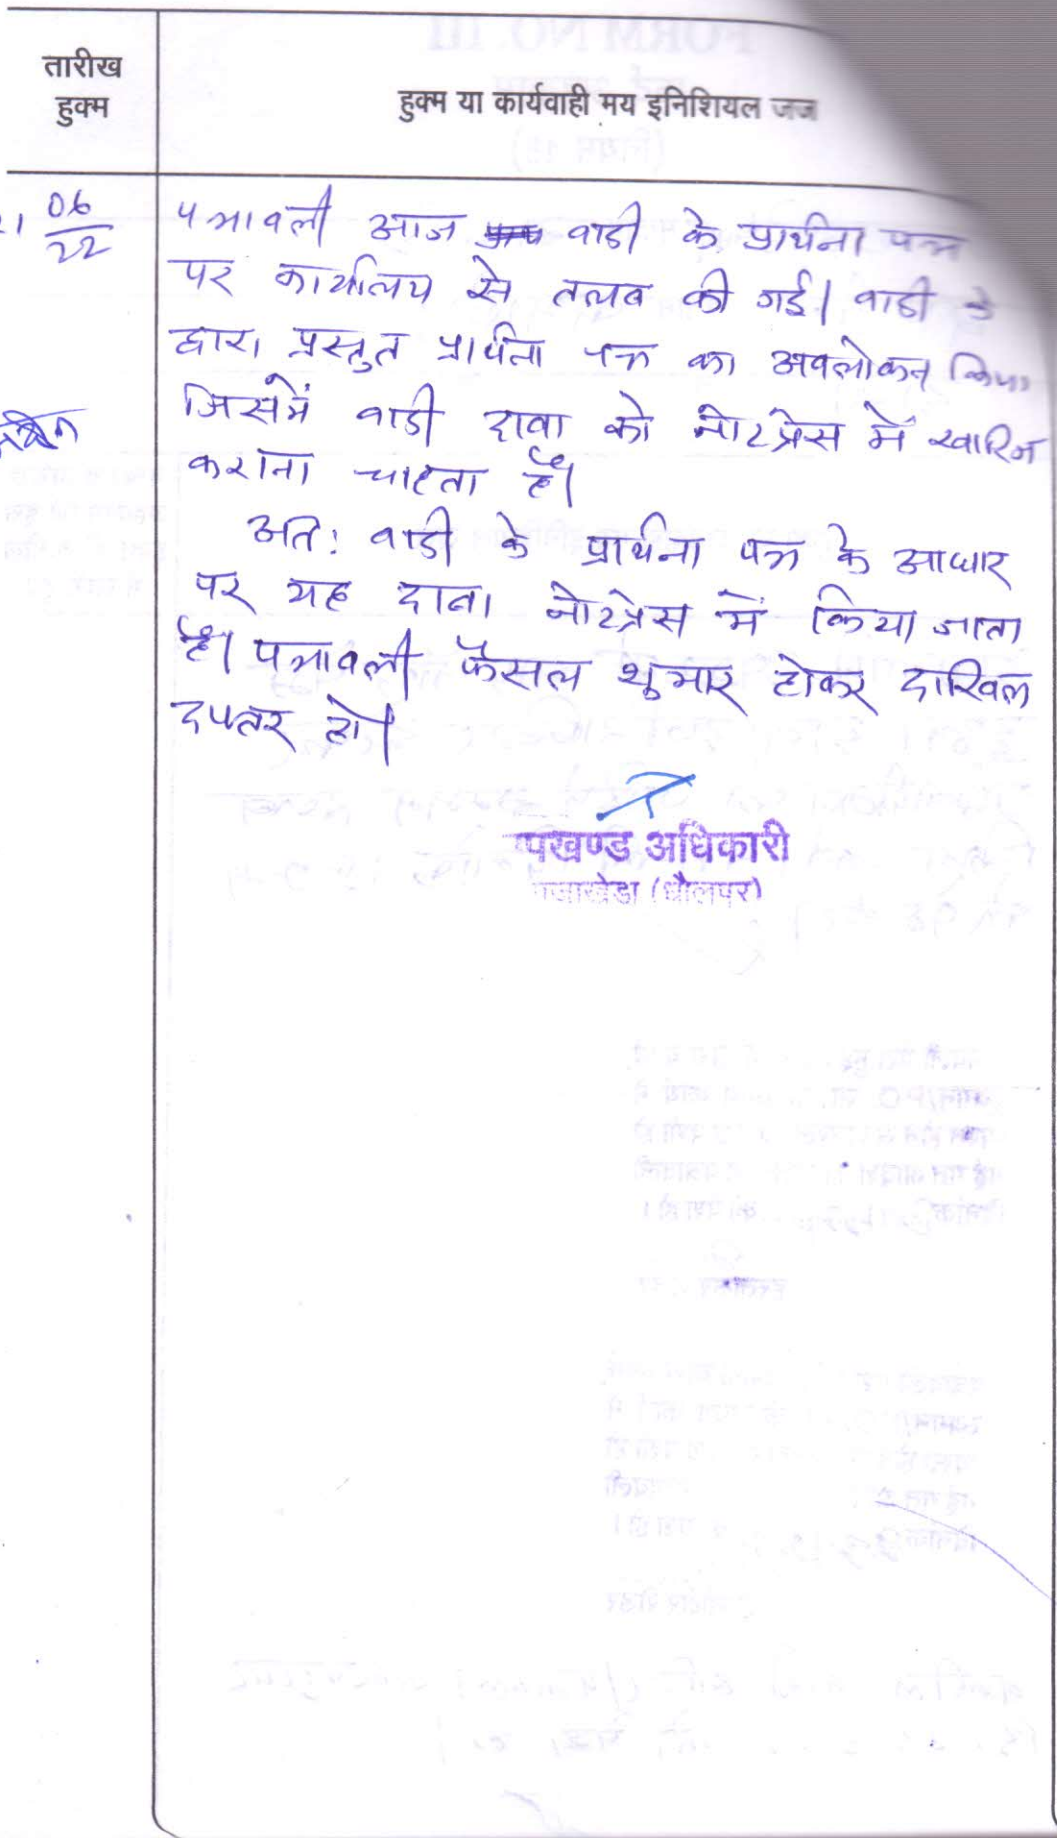 तारीख
हुक्म
हुक्म या कार्यवाही मय इनिशियल जज
06
22
पत्रावली आज वादी के प्रार्थना पत्र
पर कार्यालय से तलब की गई। वादी के
द्वारा प्रस्तुत प्रार्थना पत्र का अवलोकन किया
जिसमें वादी दावा को नोटप्रेस में खारिज
कराना चाहता है।
अतः वादी के प्रार्थना पत्र के आधार
पर यह दावा नोटप्रेस में किया जाता
है। पत्रावली फैसल शुमार होकर दाखिल
दफ्तर हो।
पखण्ड अधिकारी
जाखेडा (धौलपर)